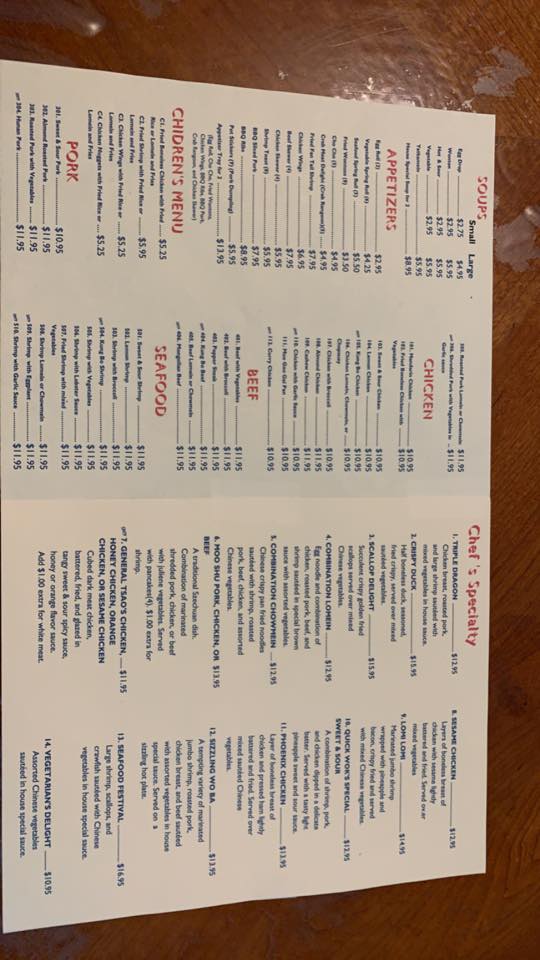 SOUPS
Small Large
Egg Drop $2.75 $4.95
Wonton $2.95 $5.95
Hot & Sour $2.95 $5.95
Vegetable $2.95 $5.95
Yatkamein $5.95
House Special Soup for 2 $8.95
APPETIZERS
Egg Roll (2) $2.95
Vegetable Spring Roll $4.25
Seafood Spring Roll $5.50
Fried Wonton (8) $3.50
Cho Cho $4.95
Crab Meat Delight (Crab Rangoon)(8) $4.95
Fried Fan Tail Shrimp $7.95
Chicken Wings $6.95
Beef Skewer $7.95
Chicken Skewer $5.95
Shrimp Toast $5.95
BBQ Sliced Pork $7.95
BBQ Ribs $8.95
Pot Stickers (7) (Pork Dumpling) $5.95
Appetizer Tray for 2 $13.95
(Egg Roll, Cho Cho, Fried Wontons,
Chicken Wings, BBQ Ribs, BBQ Pork,
Crab Rangoon, and Chicken Skewer)
CHIDREN'S MENU
C1. Fried Boneless Chicken with Fried $5.25
Rice or Lomein and Fries
C2. Fried Shrimp with Fried Rice or $5.95
Lomein and Fries
C3. Chicken Wings with Fried Rice or $5.25
Lomein and Fries
C4. Chicken Nuggets with Fried Rice or $5.25
Lomein and Fries
PORK
301. Sweet & Sour Pork $10.95
302. Almond Roasted Pork $11.95
303. Roasted Pork with Vegetables $11.95
304. Hunan Pork $11.95
305. Roasted Pork Lomein or Chowmein $11.95
306. Shredded Pork with Vegetables in $11.95
Garlic sauce
CHICKEN
101. Mandarin Chicken $10.95
102. Fried Boneless Chicken with $10.95
Vegetables
103. Sweet & Sour Chicken $10.95
104. Lemon Chicken $10.95
105. Kung Bo Chicken $10.95
106. Chicken Lomein, Chowmein, or $10.95
Chopsuey
107. Chicken with Broccoli $10.95
108. Almond Chicken $11.95
109. Cashew Chicken $11.95
110. Chicken with Garlic Sauce $10.95
111. Moo Goo Gai Pan $10.95
112. Curry Chicken $10.95
BEEF
401. Beef with Vegetables $11.95
402. Beef with Broccoli $11.95
403. Pepper Steak $11.95
404. Kung Bo Beef $11.95
405. Beef Lomein or Chowmein $11.95
406. Mongolian Beef $11.95
SEAFOOD
501. Sweet & Sour Shrimp $11.95
502. Lemon Shrimp $11.95
503. Shrimp with Broccoli $11.95
504. Kung Bo Shrimp $11.95
505. Shrimp with Vegetables $11.95
506. Shrimp with Lobster Sauce $11.95
507. Fried Shrimp with mixed $11.95
Vegetables
508. Shrimp Lomein or Chowmein $11.95
509. Shrimp with Eggplant $11.95
510. Shrimp with Garlic Sauce $11.95
Chef's Specialty
1. TRIPLE DRAGON $12.95
Chicken breast, roasted pork,
and large shrimp sautéed with
mixed vegetables in house sauce.
2. CRISPY DUCK $15.95
Half boneless duck, seasoned,
fried crispy, served over mixed
sautéed vegetables.
3. SCALLOP DELIGHT $15.95
Succulent crispy golden fried
scallops served over mixed
Chinese vegetables.
4. COMBINATION LOMEIN $12.95
Egg noodle and combination of
chicken, roasted pork, beef, and
shrimp sautéed in special brown
sauce with assorted vegetables.
5. COMBINATION CHOWMEIN $12.95
Chinese crispy pan fried noodles
sautéed with shrimp, roasted
pork, beef, chicken, and assorted
Chinese vegetables.
6. MOO SHU PORK, CHICKEN, OR $13.95
BEEF
A traditional Szechuan dish.
Combination of marinated
shredded pork, chicken, or beef
with juliene vegetables. Served
with pancakes(4). $1.00 extra for
shrimp.
7. GENERAL TSAO'S CHICKEN, $11.95
HONEY CHICKEN, ORANGE
CHICKEN, OR SESAME CHICKEN
Cubed dark meat chicken,
battered, fried, and glazed in
tangy sweet & sour spicy sauce,
honey or orange flavor sauce.
Add $1.00 extra for white meat.
8. SESAME CHICKEN $12.95
Layers of boneless breast of
chicken with sesame, lightly
battered and fried. Served over
mixed vegetables
9. LOMI LOMI $14.95
Marinated jumbo shrimp
wrapped with pineapple and
bacon, crispy fried and served
with mixed Chinese vegetables.
10. QUICK WOK'S SPECIAL $12.95
SWEET & SOUR
A combination of shrimp, pork,
and chicken dipped in a delicate
batter. Served with a tasty light
pineapple sweet and sour sauce.
11. PHOENIX CHICKEN $13.95
Layer of boneless breast of
chicken and pressed ham lightly
battered and fried. Served over
mixed sautéed Chinese
vegetables.
12. SIZZLING WO BA $13.95
A tempting variety of marinated
jumbo shrimp, roasted pork,
chicken breast, and beef sautéed
with assorted vegetables in house
special sauce. Served on a
sizzling hot plate.
13. SEAFOOD FESTIVAL $16.95
Large shrimp, scallops, and
crawfish sautéed with Chinese
vegetables in house special sauce.
14. VEGETARIAN'S DELIGHT $10.95
Assorted Chinese vegetables
sautéed in house special sauce.